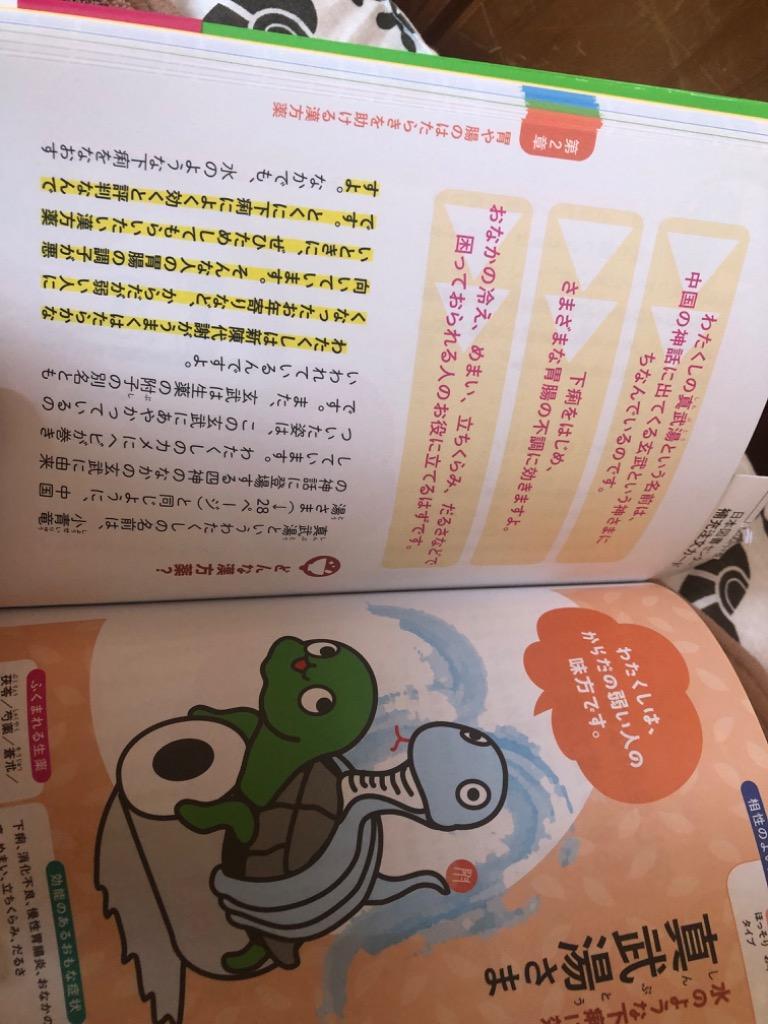 水のような下痢
真武湯さま
わたくしは、
からだの弱い人の
味方です。
ほっそり
タイプ
ふくまれる生薬
茯苓／芍薬／蒼朮／
効能のあるおもな症状
下痢、消化不良、慢性胃腸炎、おなかの
めまい、立ちくらみ、だるさ
第2章
胃や腸のはたらきを助ける漢方薬
わたくしの真武湯という名前は、
中国の神話に出てくる玄武という神さまに
ちなんでいるのです。
下痢をはじめ、
さまざまな胃腸の不調に効きますよ。
おなかの冷え、めまい、立ちくらみ、だるさなどで
困っておられる人のお役に立てるはずです。
どんな漢方薬？
真武湯というわたくしの名前は、小青竜
湯さま（→28ページ）と同じように、中国
の神話に登場する四神のなかの玄武に由来
しています。わたくしのカメにヘビが巻き
ついた姿は、この玄武にあやかっているの
です。また、玄武は生薬の附子の別名とも
いわれているんですよ。
わたくしは新陳代謝がうまくはたらかな
くなったお年寄りなど、からだが弱い人に
向いています。そんな人の胃腸の調子が悪
いときに、ぜひためしてもらいたい漢方薬
です。とくに下痢によく効くと評判なんで
すよ。
なかでも、水のような下痢をなおす